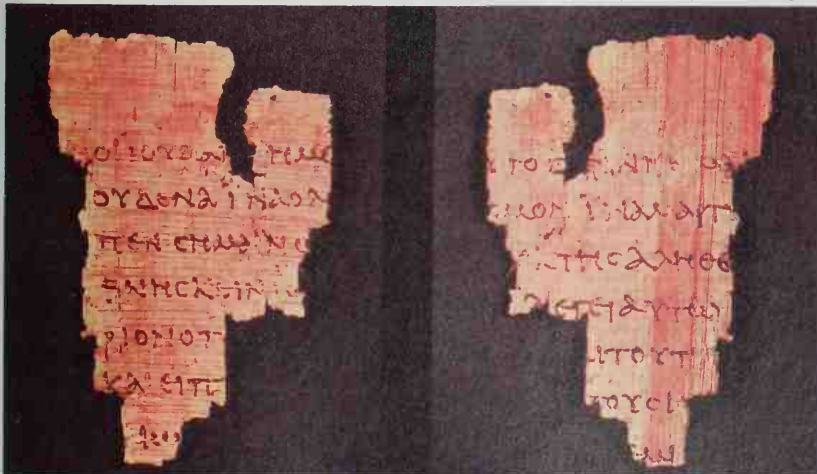 ΟΙ ΙΟΥΔΑΙ ΗΜΕ
ΟΥΔΕΝΑ ΙΝΑ Ο Λ
ΠΕΝ ϹΗΜΑΙΝΩ
ΘΝΗϹΚΕΙΝ
ΡΙΟΝ Ο Π
ΚΑΙ ΕΙΠ
ΥΤΟ
ϹΜΟΝ ΙΝΑ ΜΑΡΤΥ
ΕΚ ΤΗϹ ΑΛΗΘΕ
ΛΕΓΕΙ ΑΥΤΩ
ΑΙ ΤΟΥΤ
ΤΟΥϹ Ι